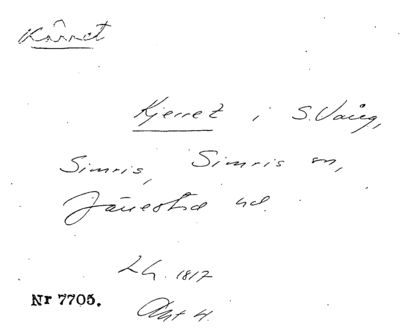 Kärret
Kjerret i S. Vång,
Simris, Simris sn,
Järrestad hd.
Lh. 1817
Nr 7705.
Akt 4.